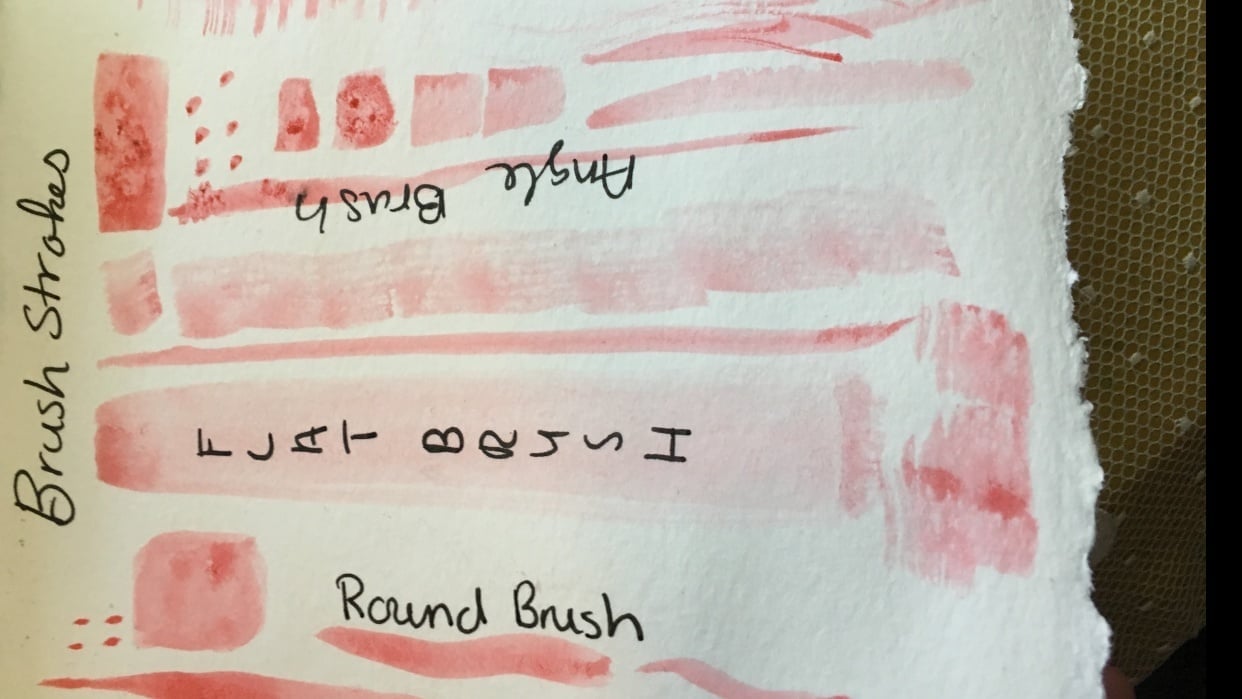 Brush Strokes
Angle
Brush
FLAT BRUSH
Round Brush